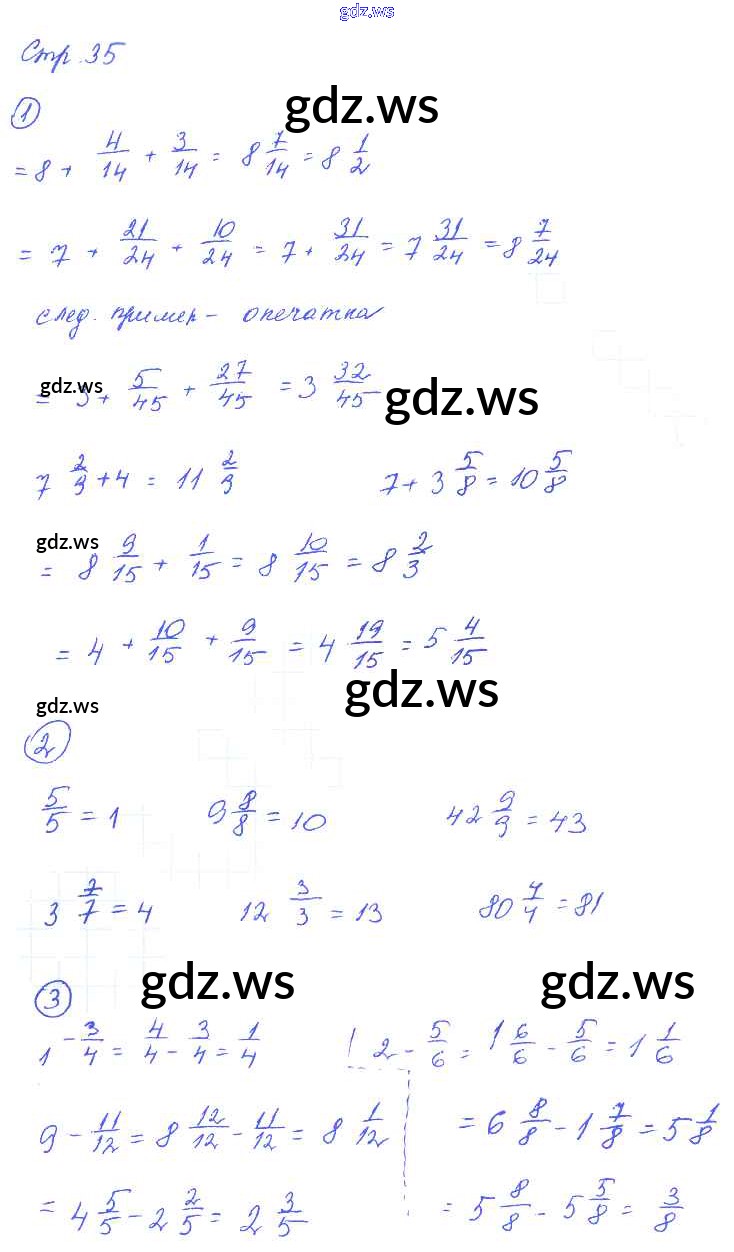 gdz.ws
Стр. 35
gdz.ws
1
= 8 + 4/14 + 3/14 = 8 7/14 = 8 1/2
= 7 + 21/24 + 10/24 = 7 + 31/24 = 7 31/24 = 8 7/24
след. пример - опечатка
gdz.ws
= 3 + 5/45 + 27/45 = 3 32/45
gdz.ws
7 2/9 + 4 = 11 2/9 7 + 3 5/8 = 10 5/8
gdz.ws
= 8 9/15 + 1/15 = 8 10/15 = 8 2/3
= 4 + 10/15 + 9/15 = 4 19/15 = 5 4/15
gdz.ws
gdz.ws
2
5/5 = 1 9 8/8 = 10 42 9/9 = 43
3 7/7 = 4 12 3/3 = 13 80 4/4 = 81
gdz.ws gdz.ws
3
1 - 3/4 = 4/4 - 3/4 = 1/4 2 - 5/6 = 1 6/6 - 5/6 = 1 1/6
9 - 11/12 = 8 12/12 - 11/12 = 8 1/12 = 6 8/8 - 1 7/8 = 5 1/8
= 4 5/5 - 2 2/5 = 2 3/5 = 5 8/8 - 5 5/8 = 3/8